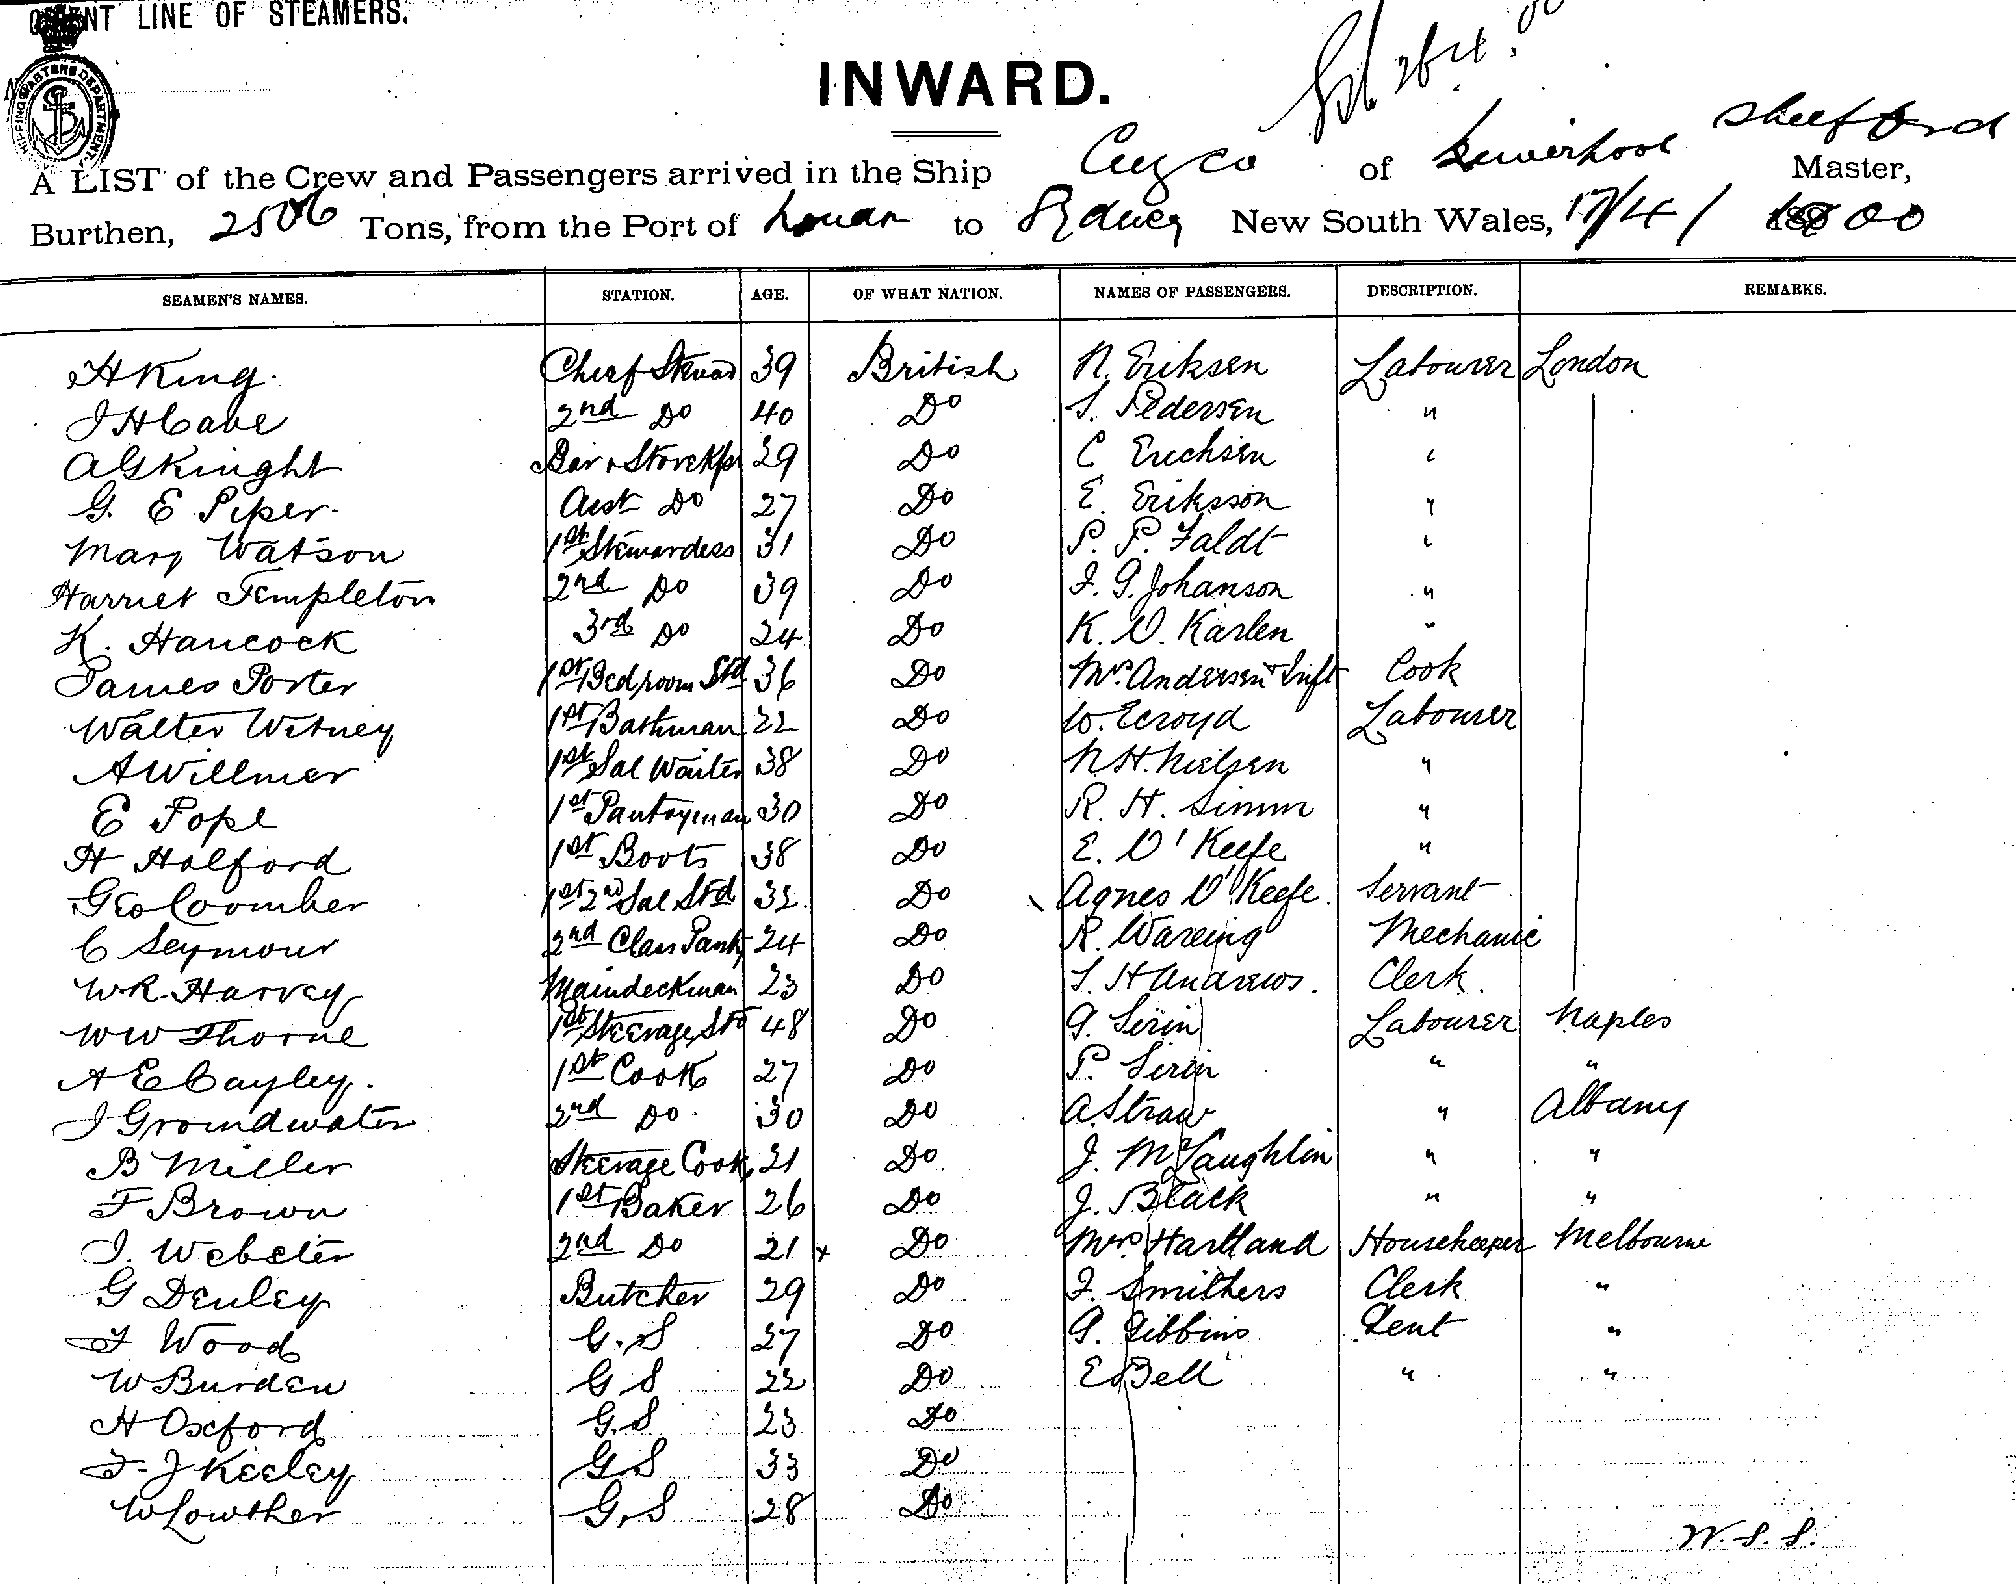 ORIENT LINE OF STEAMERS.
INWARD.
SHIPPING MASTERS DEPARTMENT
A LIST of the Crew and Passengers arrived in the Ship Cuzco of Liverpool Shelford Master,
Burthen, 2506 Tons, from the Port of London to Sydney New South Wales, 17/4/ 1900
SEAMEN'S NAMES. STATION. AGE. OF WHAT NATION. NAMES OF PASSENGERS. DESCRIPTION. REMARKS.
H King. Chief Stwad 39 British N. Eriksen Labourer London
J H Cave 2nd Do 40 Do S. Pedersen "
A G Kinght Bar & Storekpr 29 Do C Erichsen "
G. E Piper. Asst Do 27 Do E. Eriksson "
Mary Watson 1st Stewardess 31 Do P. P. Faldt "
Harriet Templeton 2nd Do 39 Do I. G. Johanson "
K. Hancock 3rd Do 24 Do K. O. Karlen "
James Porter 1st Bedroom Std 36 Do Mrs Andersen & Inft Cook
Walter Witney 1st Bathman 22 Do W. Ecroyd Labourer
A Willmer 1st Sal Waiter 38 Do N. H. Nielsen "
E Pope 1st Pantryman 30 Do R. H. Simm "
H Halford 1st Boots 38 Do E. O'Keefe "
Geo Coomber 1st 2nd Sal Std 32 Do Agnes O'Keefe. Servant
C Seymour 2nd Class Pant 24 Do R. Wareing Mechanic
W. R. Harvey Maindeckman 23 Do S. H Andrews. Clerk.
W W Thorne 1st Steerage Std 48 Do G. Serin Labourer Naples
A E Cayley. 1st Cook 27 Do P. Serin " "
J Groundwater 2nd Do 30 Do A. Straw " Albany
B Miller Steerage Cook 21 Do J. McLaughlin " "
F Brown 1st Baker 26 Do J. Black " "
J. Webster 2nd Do 21 x Do Mrs Hartland Housekeeper Melbourne
G Denley Butcher 29 Do F. Smithers Clerk "
F Wood G. S 27 Do G. Gibbins Gent "
W Burden G S 22 Do E Bell " "
H Oxford G. S 23 Do
F. J Keeley G. S 33 Do
W Lowther G. S 28 Do
W. S. S.